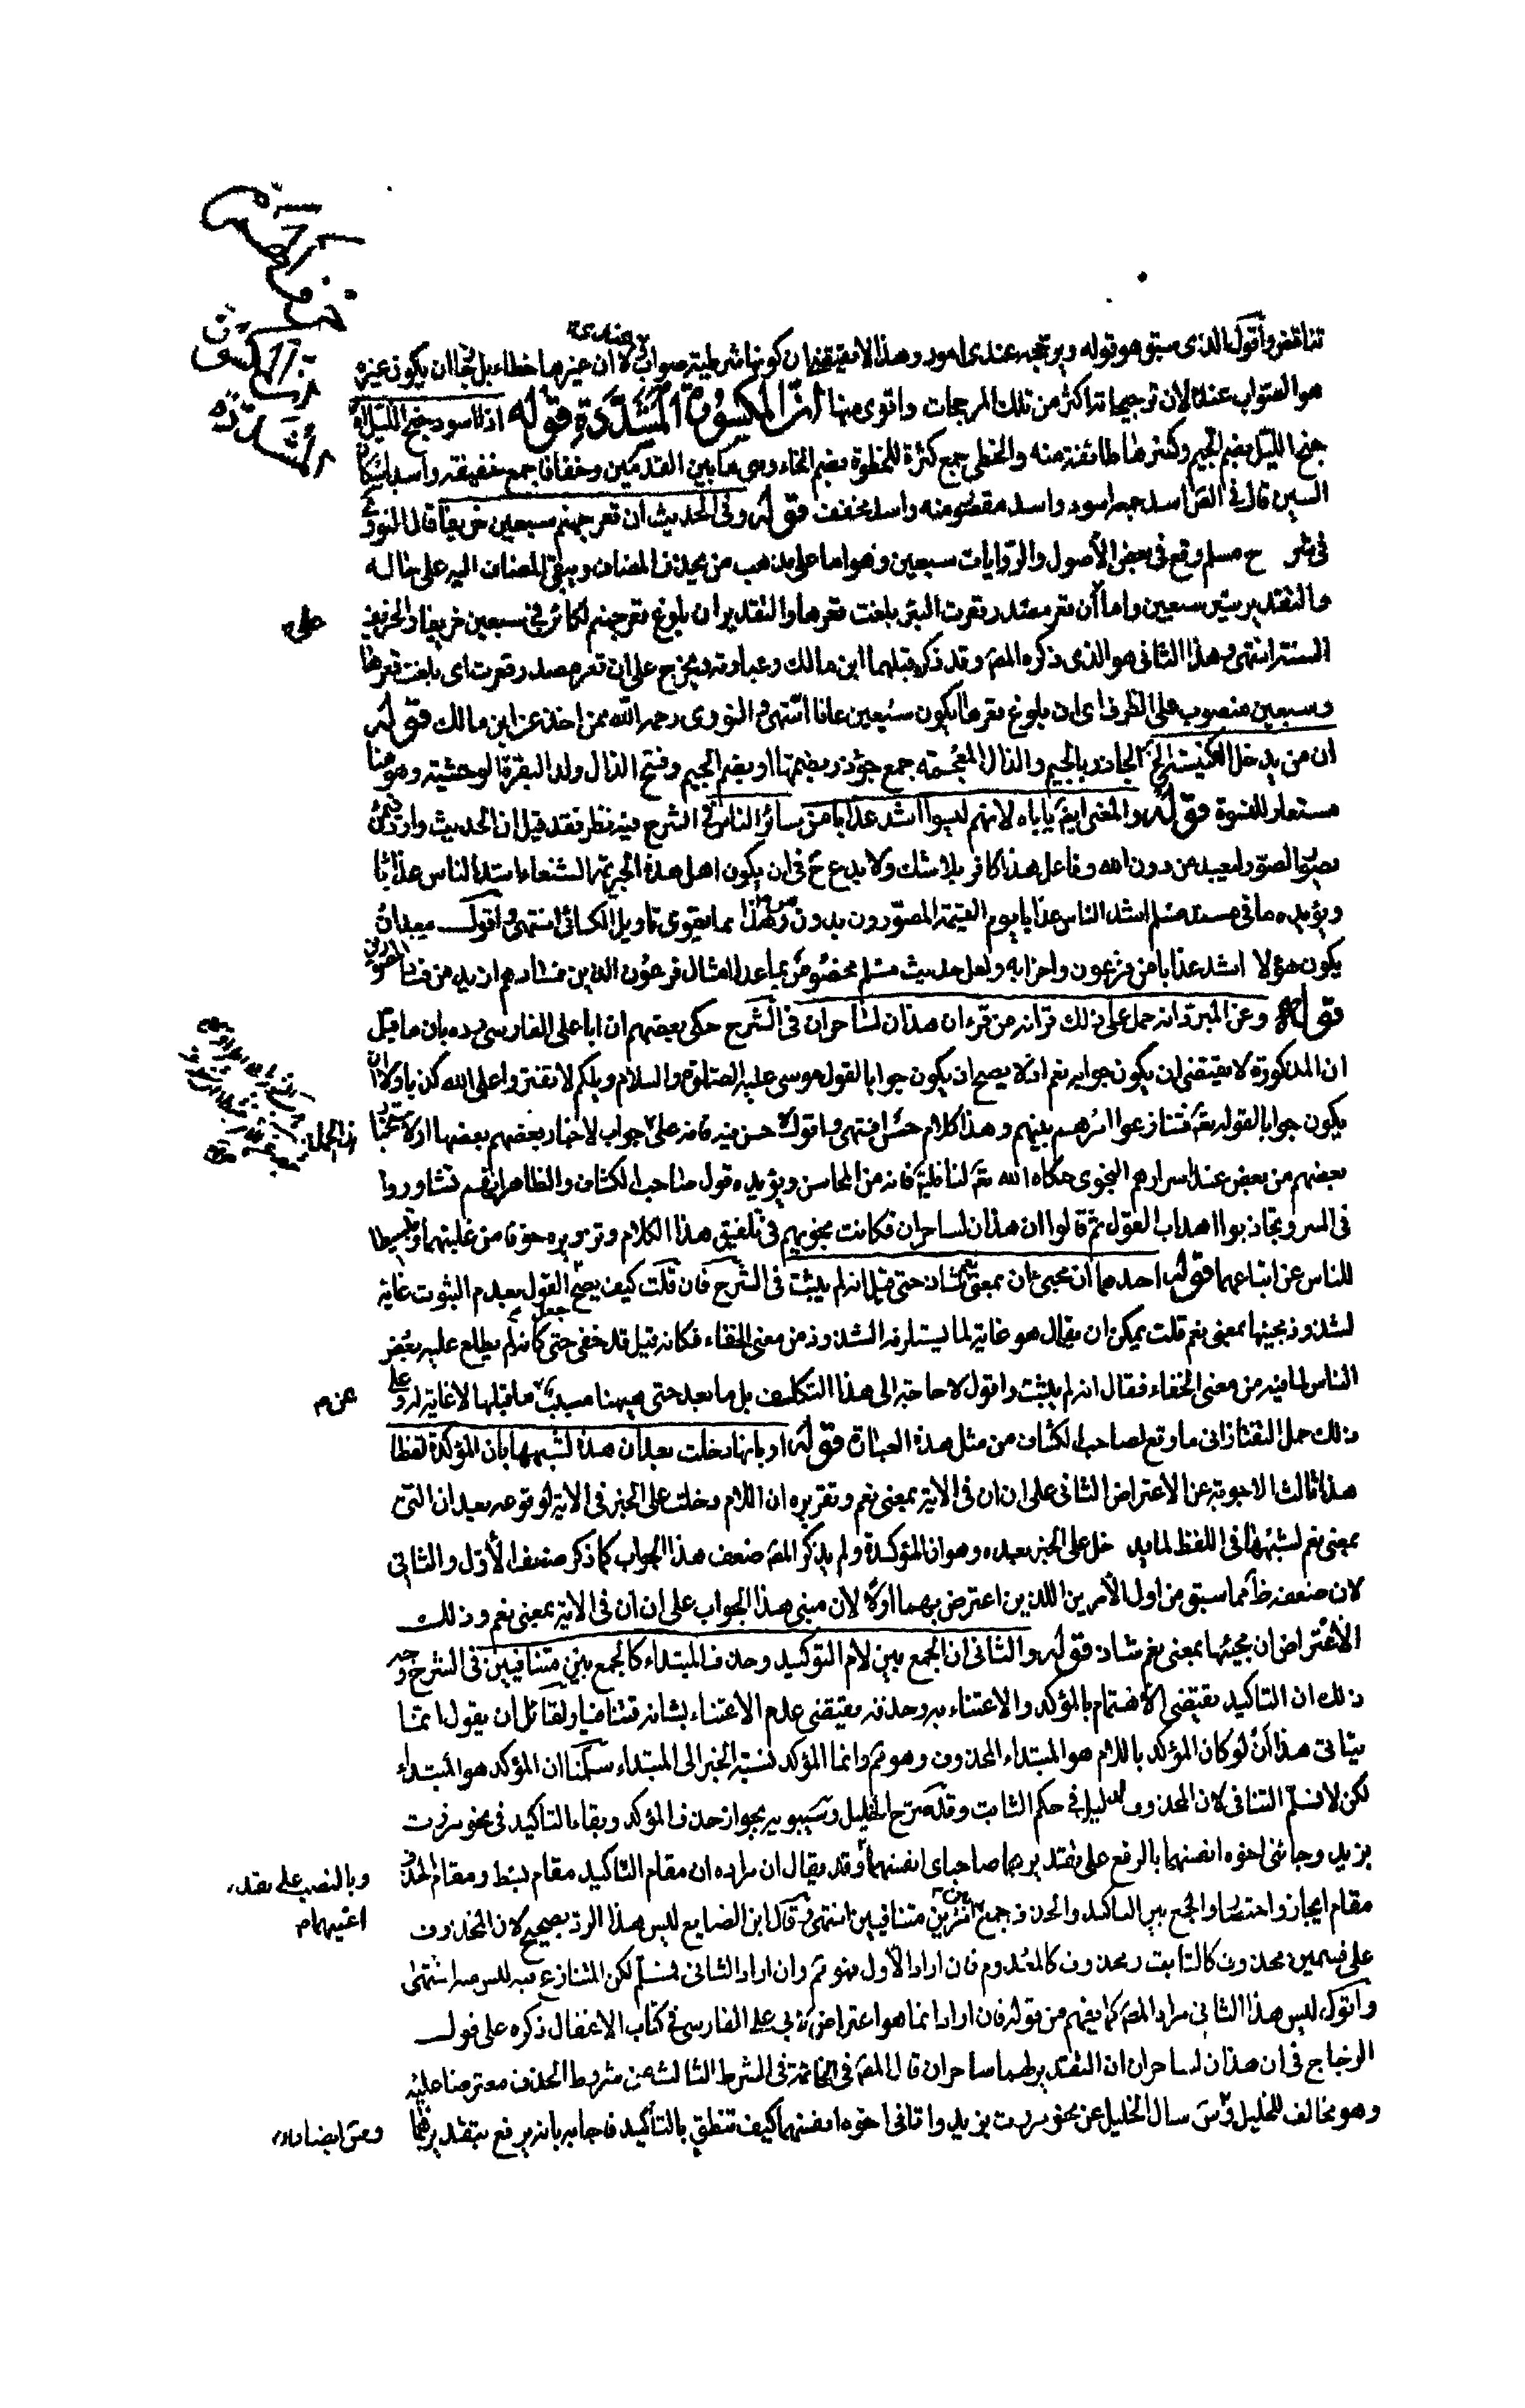 تناقض وأقول الذى سبق هو قوله ويرجحه عندى امور وهذا لا يقتضى ان كونها شرطية صواب لا ان غيرها خطاء بل يجاان يكون غيره
عنده
هو الصواب عنده لان ترجيحاته اكثر من تلك المرجحات واقوى منها انّ المكسورة المشدّدة قوله اذا اسود جنح الليل اه
جنح الليل بضم الجيم وكسرها طائفة منه والخطى جمع كثرة للخطوة بضم الخاء وهى ما بين القدمين وخفافا جمع خفيفة واسد باسكان
السين قال فى اسد جمع اسود واسد مقصور منه واسد مخفف قوله وفى الحديث ان قعر جهنم سبعين خريفا قال النووى
فى شرح مسلم وقع فى بعض الأصول والروايات سبعين وهو اما على مذهب من يحذف المضاف ويبقى المضاف اليه على حاله
والتقدير سير سبعين واما أن قعر مصدر قعرت البئر بلغت قعرها والتقدير ان بلوغ قعر جهنم لكائن فى سبعين خريفا والخريف
السنة انتهى وهذا الثانى هو الذى ذكره المص وقد ذكره قبلهما ابن مالك وعبارته ويخرج على ان قعر مصدر قعرت اى بلغت قعرها
على
وسبعين منصوب على الظرف اى ان بلوغ قعرها يكون سبعين عاما انتهى والنووى رحمه الله ممن اخذ عن ابن مالك قوله
ان من يدخل الكنيسة الخ الجاذر بالجيم والذال المعجمة جمع جؤذر بضمها او بضم الجيم وفتح الذال ولد البقرة الوحشية وهو هنا
مستعار للنسوة قوله والمعنى ايضم ياباه لانهم ليسوا اشد عذابا من سائر الناس فى الشرح فيه نظر فقد قيل ان الحديث وارد فيمن
يصور الصور ليعبد من دون الله وفاعل هذا كافر بلا شك ولا بدع ح فى ان يكون اهل هذه الجريمة الشنعاء اشد الناس عذابا
ويؤيده ما فى مسند مسلم اشد الناس عذابا يوم القيمة المصورون بدون من وهذا مما يقوى تاويل الكسائى انتهى واقول يبعد ان
يكون هؤلا اشد عذابا من فرعون واحزابه ولعل حديث مسلم مخصوص بما عدا امثال فرعون الذين فسادهم ازيد من فساد المصورين
قوله وعن المبرد انه حمل على ذلك قراءة من قرء ان هذان لساحران فى الشرح حكى بعضهم ان ابا على الفارسى رده بان ما قبل
ان المذكورة لا يقتضى ان يكون جوابه نعم اذ لا يصح ان يكون جوابا لقول موسى عليه الصلوة والسلام ويلكم لا تفتروا على الله كذبا ولا ان
يكون جوابا لقوله تعم فتنازعوا امرهم بينهم وهذا كلام حسن انتهى واقول لا حسن فيه فانه على جواب لاخبار بعضهم بعضها او لاستخبار
بعضهم من بعض عند اسرارهم النجوى حكاه الله تعم لنا فانه من المحاسن ويؤيده قول صاحب الكشاف والظاهر انهم تشاوروا
فى السر وتجاذبوا اهداب القول ثم قالوا ان هذان لساحران فكانت نجويهم فى تلفيق هذا الكلام وتزويره خوفا من غلبتهما وتثبيطا
للناس عن اتباعهما قوله احدهما ان مجىء ان بمعنى نعم شاذ حتى قيل انه لم يثبت فى الشرح فان قلت كيف يصح جعل القول بعدم الثبوت غاية
لشذوذ مجيئها بمعنى نعم قلت يمكن ان يقال هو غاية لما يستلزمه الشذوذ من معنى الخفاء فكانه قيل قد خفى حتى كانه لم يطلع عليه بعض
الناس لما فيه من معنى الخفاء فقال انه لم يثبت واقول لا حاجة الى هذا التكلف بل ما بعد حتى ههنا مسبب ما قبلها لا غاية له وعلى
عن
ذلك حمل التفتازانى ما وقع لصاحب الكشاف من مثل هذه العبارة قوله او بانها دخلت بعد ان هذه لشبهها بان المؤكدة لفظا
هذا ثالث الاجوبة عن الاعتراض الثانى على ان ان فى الاية بمعنى نعم وتقريره ان اللام دخلت على الخبر فى الاية لوقوعه بعد ان التى
بمعنى نعم لشبهها فى اللفظ لما يدخل على الخبر بعده وهو ان المؤكدة ولم يذكر المص ضعف هذا الجواب كما ذكر ضعف الأول والثانى
لان ضعفه ظ مما سبق من اول الأمرين اللذين اعترض بهما اولا لان مبنى هذا الجواب على ان ان فى الاية بمعنى نعم وذلك
الأعتراض ان مجيئها بمعنى نعم شاذ قوله والثانى ان الجمع بين لام التوكيد وحذف المبتداء كالجمع بين متنافيين فى الشرح وجه
ذلك ان التاكيد يقتضى الاهتمام بالمؤكد والاعتناء به وحذفه يقتضى عدم الاعتناء بشانه فتنافيا ولقائل ان يقول انما
يتاتى هذا أن لو كان المؤكد باللام هو المبتداء المحذوف وهو مم وانما المؤكد نسبة الخبر الى المبتداء سلمنا ان المؤكد هو المبتداء
لكن لا نسلم التنافى لان المحذوف لدليل فى حكم الثابت وقد صرح الخليل وسيبويه بجواز حذف المؤكد وبقاء التاكيد فى نحو مررت
بزيد وجائنى اخوه انفسهما بالرفع على تقديرهما صاحباى انفسهما وقد يقال ان مراده ان مقام التاكيد مقام بسط ومقام الحذف
وبالنصب على تقدير
اعنيهما
مقام ايجاز واختصار والجمع بين التاكيد والحذف جمع بين امرين متنافيين انتهى قال ابن الضايع ليس هذا الرد بصحيح لان المحذوف
على قسمين محذوف كالثابت ومحذوف كالمعدوم فان اراد الأول فهو مم وان اراد الثانى فمسلم لكن المتنازع فيه ليس منه انتهى
واقول ليس هذا الثانى مراد المص كما يفهم من قوله فان اراد انما هو اعتراض لابى على الفارسى فى كتاب الاغفال ذكره على قول
الزجاج فى ان هذان لساحران ان التقدير لهما ساحران قال المص فى الخاتمة فى الشرط الثالث من شروط الحذف معترضا عليه
وهو مخالف للخليل وس سال الخليل عن نحو مررت بزيد واتانى اخوه انفسهما كيف تنطق بالتأكيد فاجابه بانه يرفع بتقديرهما